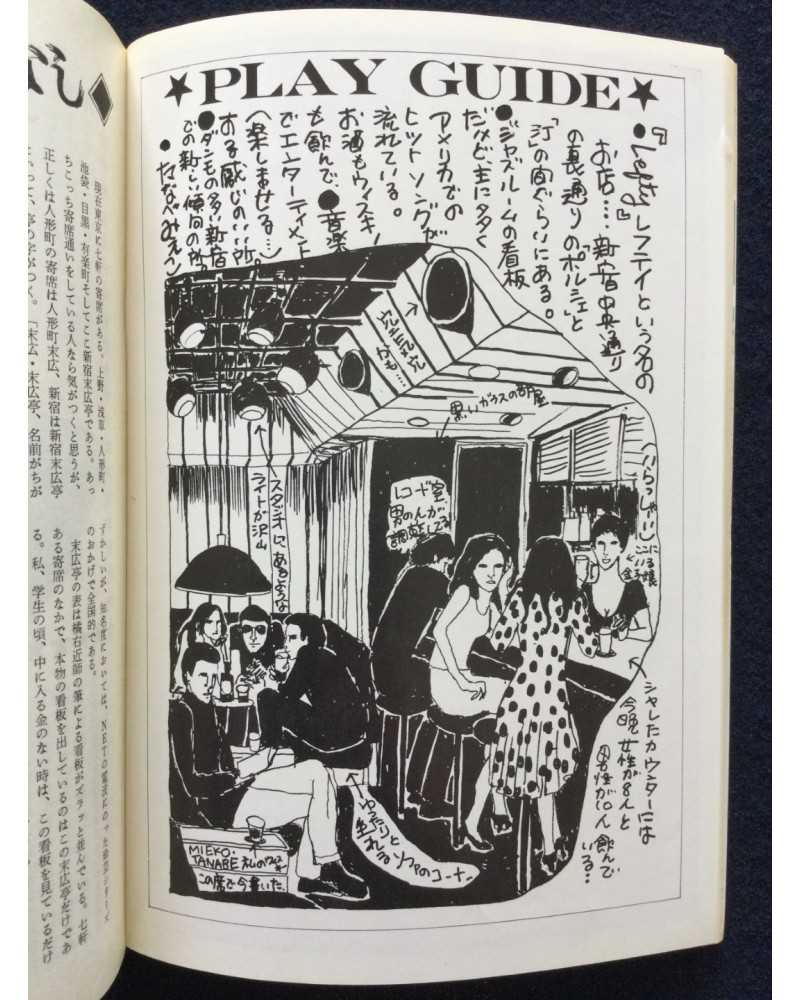 ★PLAY GUIDE★
●『Lefty』レフティという名の
お店…新宿中央通り
の裏通りの「ポルシェ」と
「汀」の間ぐらいにある。
●ジャズルームの看板
だけど、主に多く
アメリカでの
ヒットソングが
流れている。
お酒もウイスキー
も飲んで、●音楽
でエンターティメント
(楽しませる…)
ある感じのいい所。
●ダンモの多い新宿
での新しい傾向の所。
●たなべみえこ
空気穴
かも…
黒いガラスの部屋
レコード室
男の人が
調整してる
スタジオにあるような
ライトが沢山
(いらっしゃい)
ここに
いる嬢
シャレたカウンターには
今晩女性が8人と
男性が10人飲んで
いる…
ゆったりと
坐れる
ソファのコーナー
MIEKO・
TANABE 私の
この席で今書いた
なし◆
現在東京に七軒の寄席がある。上野・浅草・人形町・
池袋・目黒・有楽町そしてここ新宿末広亭である。あっ
ちこっち寄席通いをしている人なら気がつくと思うが、
正しくは人形町の寄席は人形町末広、新宿は新宿末広亭
といって、亭の字がつく。「末広・末広亭、名前がちが
ずかしいが、知名度においては、NETの電波にのった演芸シリーズ
のおかげで全国的である。
末広亭の表は橘右近師の筆による看板がズラッと並んでいる。七軒
ある寄席のなかで、本物の看板を出しているのはこの末広亭だけであ
る。私、学生の頃、中に入る金のない時は、この看板を見ているだけ